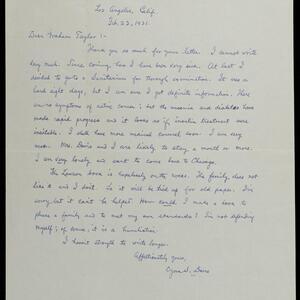 Los Angeles, Calif.
Feb. 23, 1931.
Dear Graham Taylor :-
Thank you so much for your letter. I cannot write
very much. Since coming, I have been very sick. At last I
decided to go to a Sanitarium for thorough examination. It was a
hard eight days, but I am sure I got definite information. There
are no symptoms of active cancer, but the anemia and diabetes have
made rapid progress and it looks as if insulin treatment were
inevitable. I shall have more medical counsel soon. I am very
weak. Mrs. Davis and I are likely to stay a month or more.
I am very lonely and want to come home to Chicago.
The Lawson book is hopelessly on the rocks. The family does not
like it and I don't. So it will be tied up for old paper. I'm
sorry, but it can't be helped. How could I make a book to
please a family and to met my own standards? I'm not defending
myself; of course, it is a humiliation.
I haven't strength to write longer.
Affectionately yours,
Ozora S. Davis